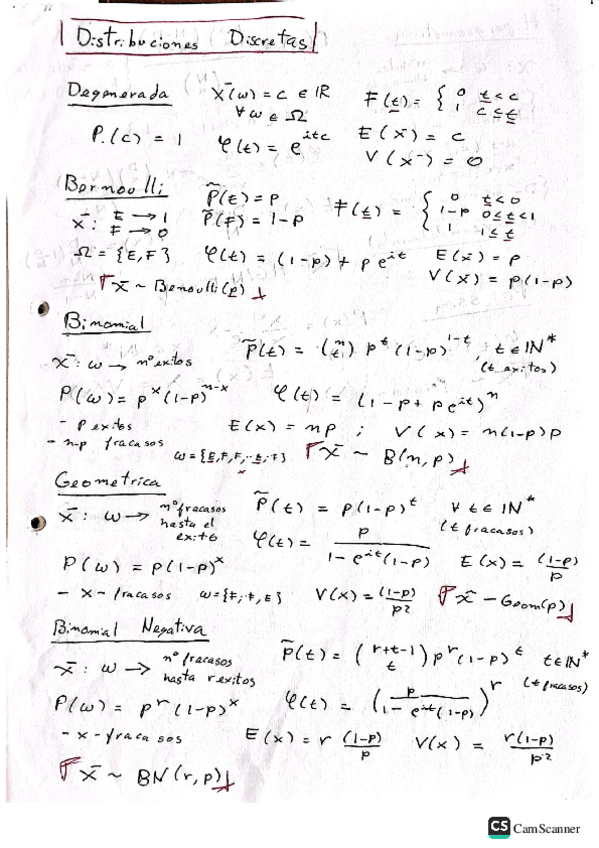 Distribuciones Discretas
Degenerada X(ω) = c ∈ IR ∀ω ∈ Ω F(t) = { 0 t < c
1 c ≤ t
P.(c) = 1 φ(t) = e^{itc} E(X) = c
V(X) = 0
Bernoulli P̃(E) = P F(t) = { 0 t < 0
X: E → 1 P̃(F) = 1-P 1-p 0 ≤ t < 1
F → 0 1 1 ≤ t
Ω = {E, F} φ(t) = (1-p) + p e^{it} E(X) = p
X ~ Benoulli(p) V(X) = p(1-p)
Binomial
X: ω → nº exitos P̃(t) = (n t) p^t (1-p)^{1-t}, t ∈ IN*
(t exitos)
P(ω) = p^x (1-p)^{n-x} φ(t) = (1-p + p e^{it})^n
- p exitos E(x) = np ; V(x) = n(1-p)p
- n-p fracasos
ω = {E, F, F, .., E, F} X ~ B(n, p)
Geometrica
X: ω → nº fracasos hasta el exito P̃(t) = p(1-p)^t ∀ t ∈ IN*
(t fracasos)
φ(t) = p / (1 - e^{it}(1-p))
P(ω) = p(1-p)^x E(x) = (1-p)/p
- x - fracasos ω = {F, F, E} V(x) = (1-p)/p² X - Geom(p)
Binomial Negativa
X: ω → nº fracasos hasta r exitos P̃(t) = (r+t-1 t) p^r (1-p)^t t ∈ IN*
(t fracasos)
P(ω) = p^r (1-p)^x φ(t) = (p / (1 - e^{it}(1-p)))^r
- x - fracasos E(x) = r (1-p)/p V(x) = r(1-p)/p²
X ~ BN(r, p)
CS CamScanner